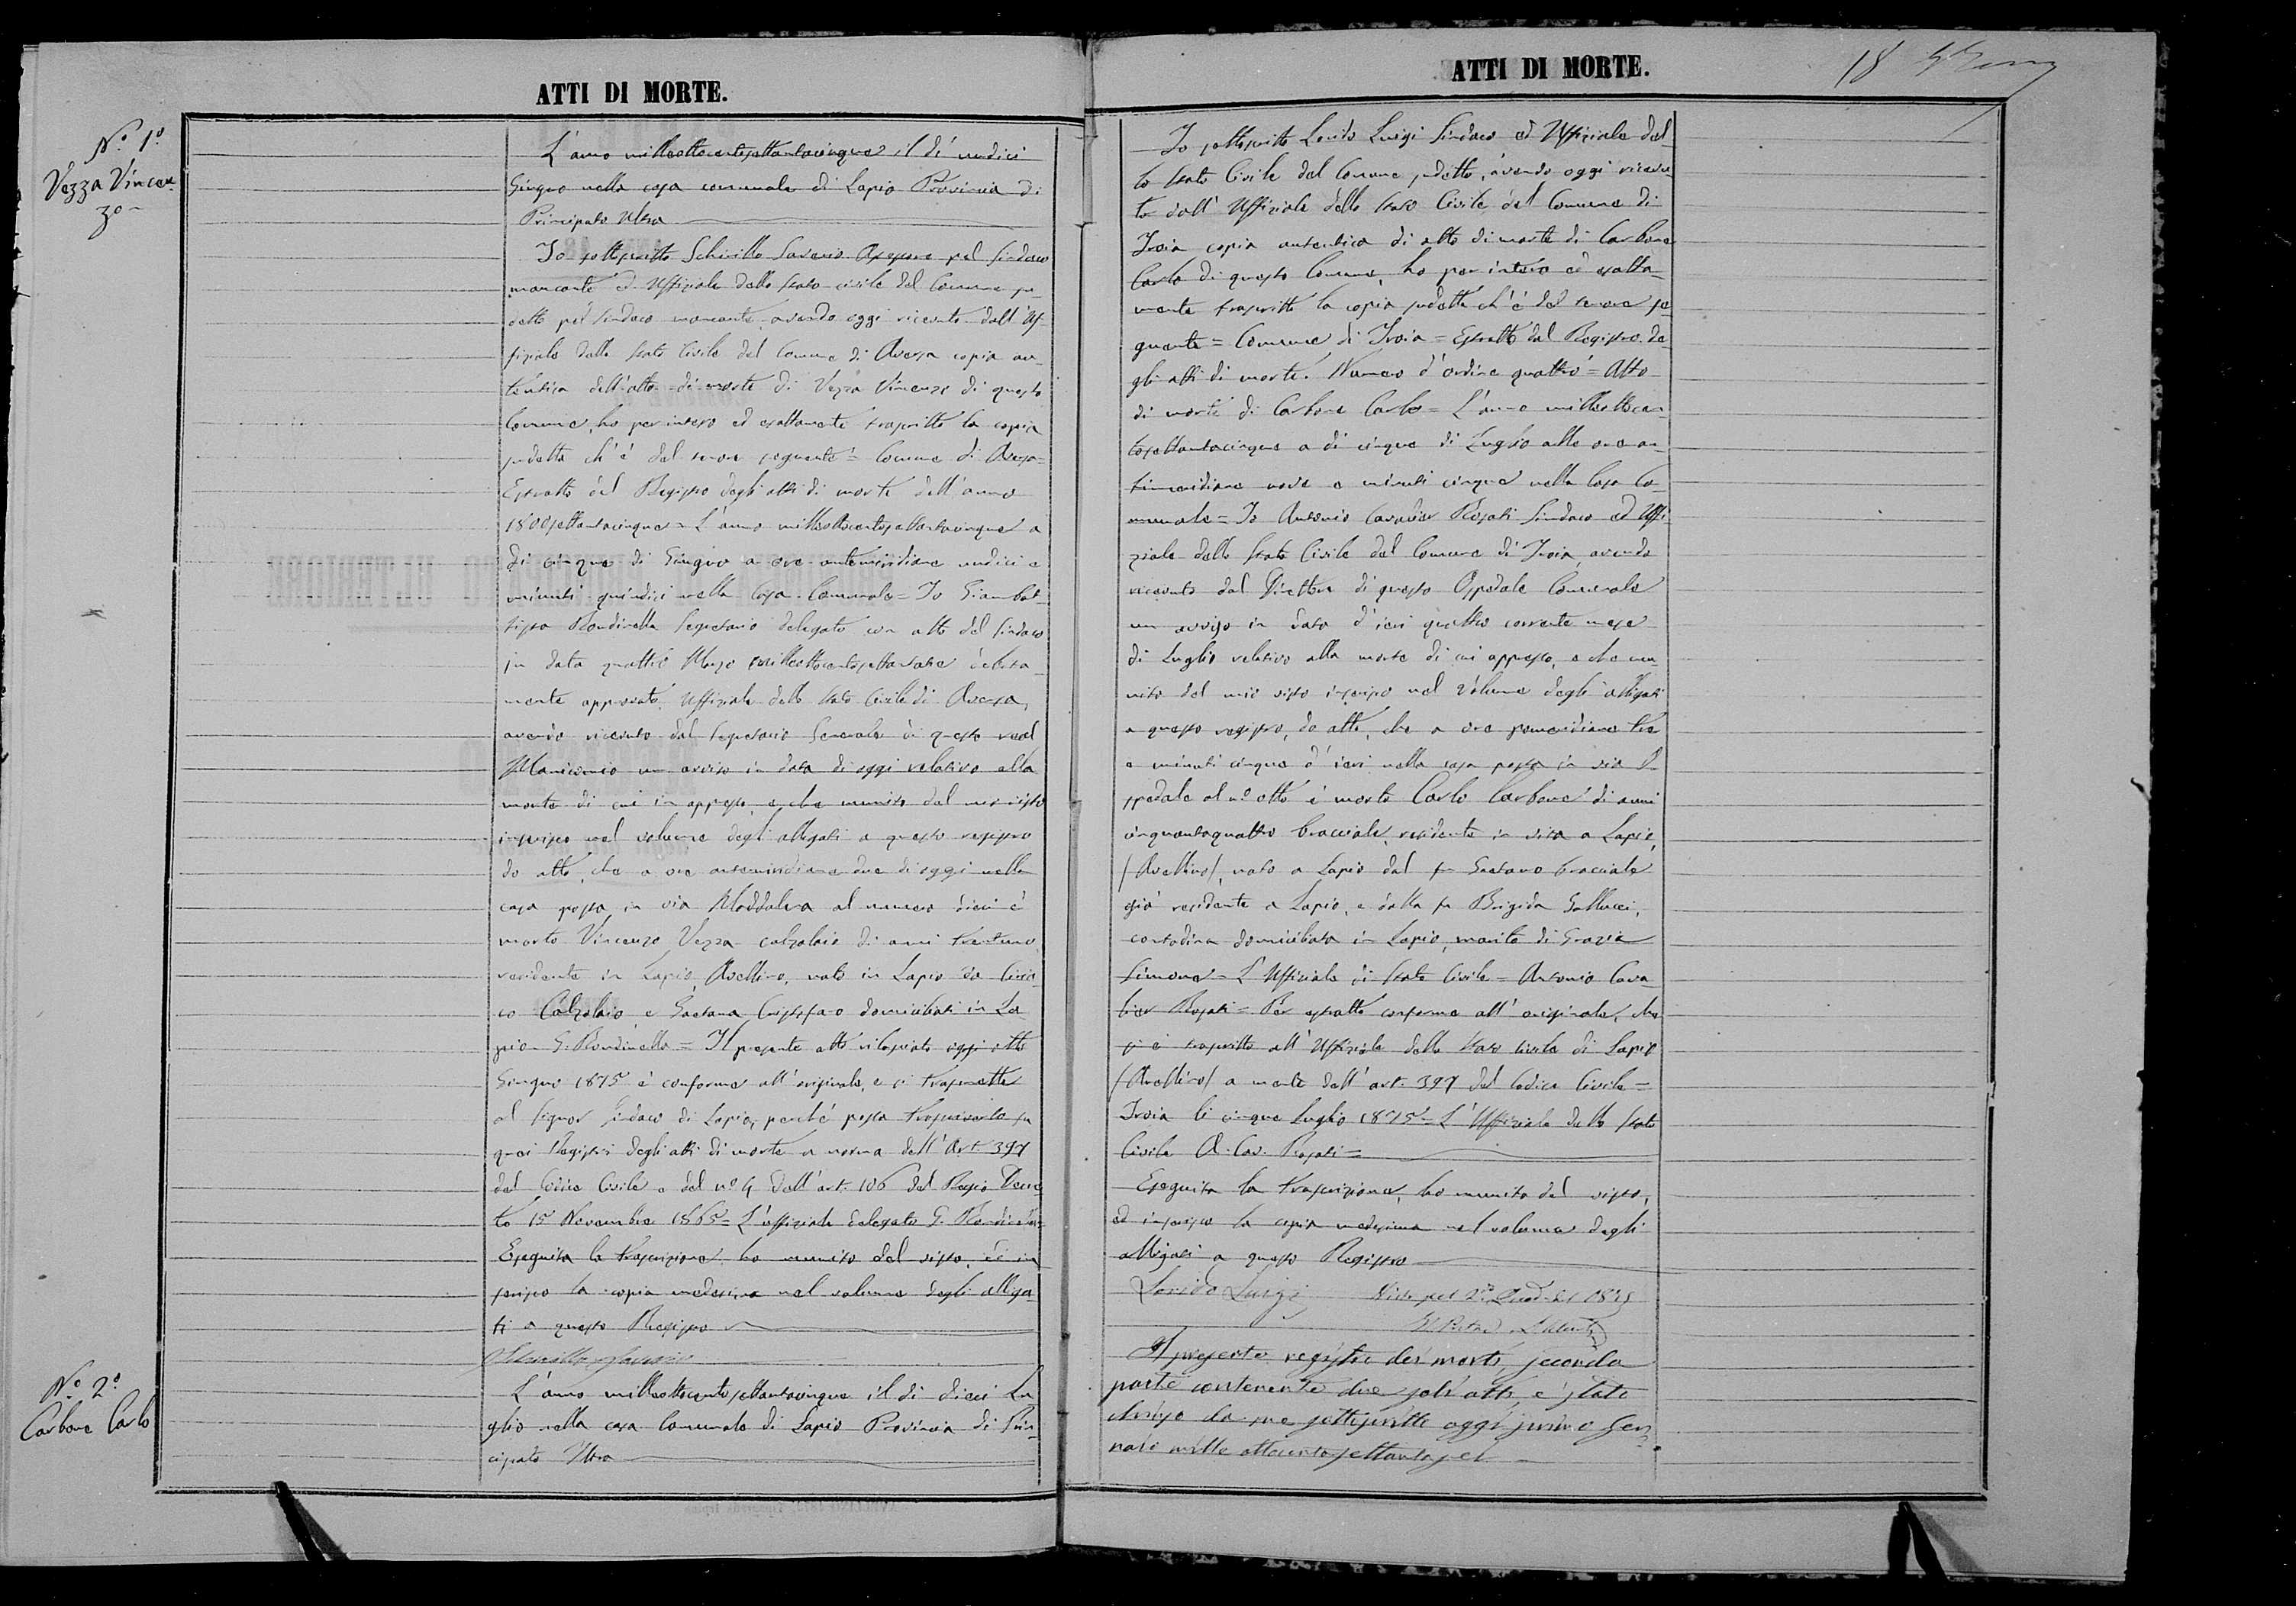 ATTI DI MORTE.
N.º 1.º
Vezza Vincen
zo
L'anno milleottocentosettantacinque il dì undici
Giugno nella casa comunale di Lapio Provincia di
Principato Ultra
Io sottoscritto Schirillo Saverio Assessore pel Sindaco
mancante ed Uffiziale dello Stato civile del Comune su
detto pel Sindaco mancante, avendo oggi ricevuto dall'Uf
fiziale dello Stato Civile del Comune di Aversa copia au
tentica dell'atto di morte di Vezza Vincenzo di questo
Comune, ho per intero ed esattamente trascritto la copia
sudetta ch'è del tenore seguente = Comune di Aversa =
Estratto del Registro degli atti di morte dell'anno
1800settantacinque = L'anno milleottocentosettantacinque a
dì cinque di Giugno a ore antemeridiane undici e
minuti quindici nella Casa Comunale = Io Giambat
tista Rondinella Segretario delegato con atto del Sindaco
in data quattro Marzo milleottocentosettanta debita
mente approvato, Uffiziale dello Stato Civile di Aversa,
avendo ricevuto dal Segretario Generale di questo real
Manicomio un avviso in data di oggi relativo alla
morte di cui in appresso, e che munito del mio visto
inserisco nel volume degli allegati a questo registro
do atto, che a ore antemeridiane due di oggi nella
casa posta in via Maddalena al numero dieci è
morto Vincenzo Vezza calzolaio di anni trentuno
residente in Lapio, Avellino, nato in Lapio da Ciria
co Calzolaio, e Gaetana Cristofaro domiciliati in La
pio = G. Rondinella = Il presente atto rilasciato oggi otto
Giugno 1875 è conforme all'originale, e si trasmette
al Signor Sindaco di Lapio, perchè possa trascriverlo su
quei Registri degli atti di morte a norma dell'Art. 397
del Codice Civile e del nº 4 dell'art. 106 del Regio Decre
to 15 Novembre 1865 = L'uffiziale delegato G. Rondinella =
Eseguita la trascrizione ho munito del visto, ed in
serisco la copia medesima nel volume degli allega
ti a questo Registro
Schirillo Saverio
N.º 2.º
Carbone Carlo
L'anno milleottocentosettantacinque il dì dieci Lu
glio nella casa Comunale di Lapio Provincia di Prin
cipato Ultra
ATTI DI MORTE.
18
Io sottoscritto Luigi Sindaco ed Uffiziale del
lo Stato Civile del Comune sudetto, avendo oggi ricevu
to dall'Uffiziale dello Stato Civile del Comune di
Troia copia autentica di atto di morte di Carbone
Carlo di questo Comune, ho per intero ed esatta
mente trascritto la copia sudetta ch'è del tenore se
guente = Comune di Troia = Estratto dal Registro de
gli atti di morte. Numero d'ordine quattro = Atto
di morte di Carbone Carlo = L'anno milleottocen
tosettantacinque a dì cinque di Luglio alle ore an
timeridiane nove e minuti cinque nella Casa Co
munale = Io Antonio Cavalier Rosati Sindaco ed Uffi
ziale dello Stato Civile del Comune di Troia, avendo
ricevuto dal Direttore di questo Ospedale Comunale
un avviso in data d'ieri quattro corrente mese
di Luglio relativo alla morte di cui appresso, e che mu
nito del mio visto inserisco nel volume degli allegati
a questo registro, do atto, che a ore pomeridiane tre
e minuti cinque d'ieri nella casa posta in via O
spedale al nº otto è morto Carlo Carbone di anni
cinquantaquattro bracciale, residente in vita a Lapio,
(Avellino), nato a Lapio dal fu Gaetano bracciale
già residente a Lapio, e dalla fu Brigida Gallucci,
contadina domiciliata in Lapio, marito di Grazia
Simone = L'Uffiziale di Stato Civile = Antonio Cava
lier Rosati = Per estratto conforme all'originale, che
si è trascritto all'Uffiziale dello Stato Civile di Lapio
(Avellino) a mente dell'art. 397 del Codice Civile =
Troia li cinque Luglio 1875 = L'Uffiziale dello Stato
Civile A. Cav. Rosati =
Eseguita la trascrizione, ho munito del visto,
ed inserisco la copia medesima nel volume degli
allegati a questo Registro
Luigi
Il presente registro dei morti, seconda
parte contenente due soli atti, è stato
chiuso da me sottoscritto oggi primo Gen
naio mille ottocentosettantasei